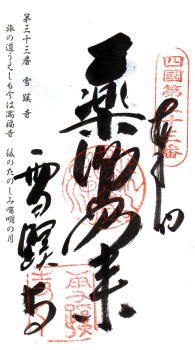 四國第三十三番
奉拝
薬師如来
雪蹊寺
第三十三番 雪蹊寺
旅の道うえしも今は高福寺 後のたのしみ有明の月